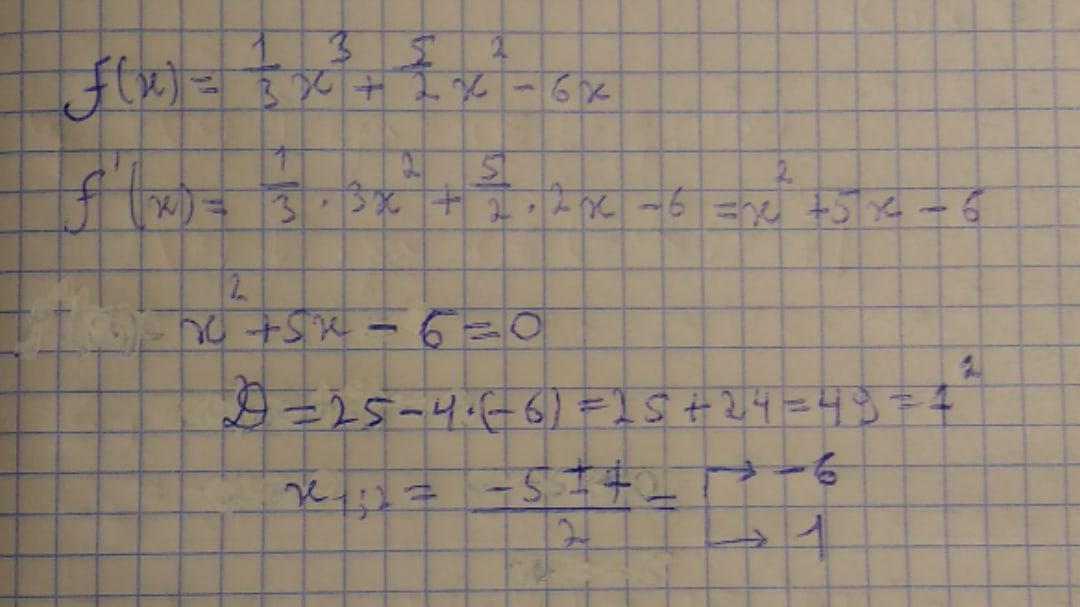 f(x) = 1/3 x³ + 5/2 x² - 6x
f'(x) = 1/3 · 3x² + 5/2 · 2x - 6 = x² + 5x - 6
x² + 5x - 6 = 0
D = 25 - 4·(-6) = 25 + 24 = 49 = 7²
x₁;₂ = (-5 ± 7)/2 = → -6
→ 1